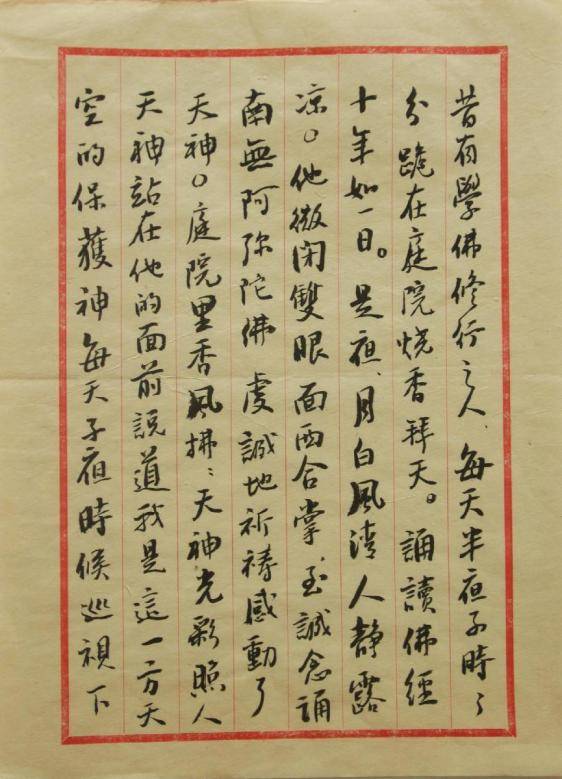 昔有學佛修行之人、每天半夜子時時
分跪在庭院燒香拜天。誦讀佛經
十年如一日。是夜、月白風清人静露
凉。他微闭雙眼面西合掌、至誠念誦
南無阿弥陀佛虔誠地祈祷感動了
天神。庭院里香風拂拂天神光彩照人
天神站在他的面前説道我是這一方天
空的保護神每天子夜時候巡視下